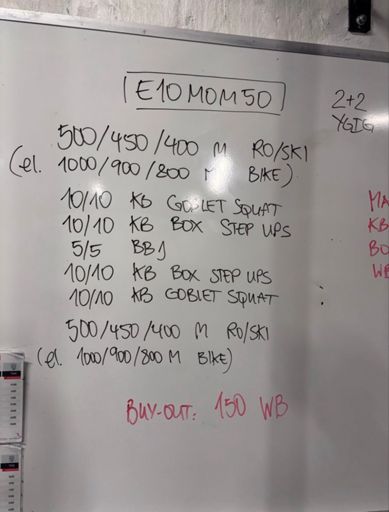 E10MOM50
2+2
YGIG
500/450/400 M RO/SKI
(el. 1000/900/800 M BIKE)
10/10 KB GOBLET SQUAT
10/10 KB BOX STEP UPS
5/5 BBJ
10/10 KB BOX STEP UPS
10/10 KB GOBLET SQUAT
500/450/400 M RO/SKI
(el. 1000/900/800 M BIKE)
BUY-OUT: 150 WB
MA
KB
BO
WB